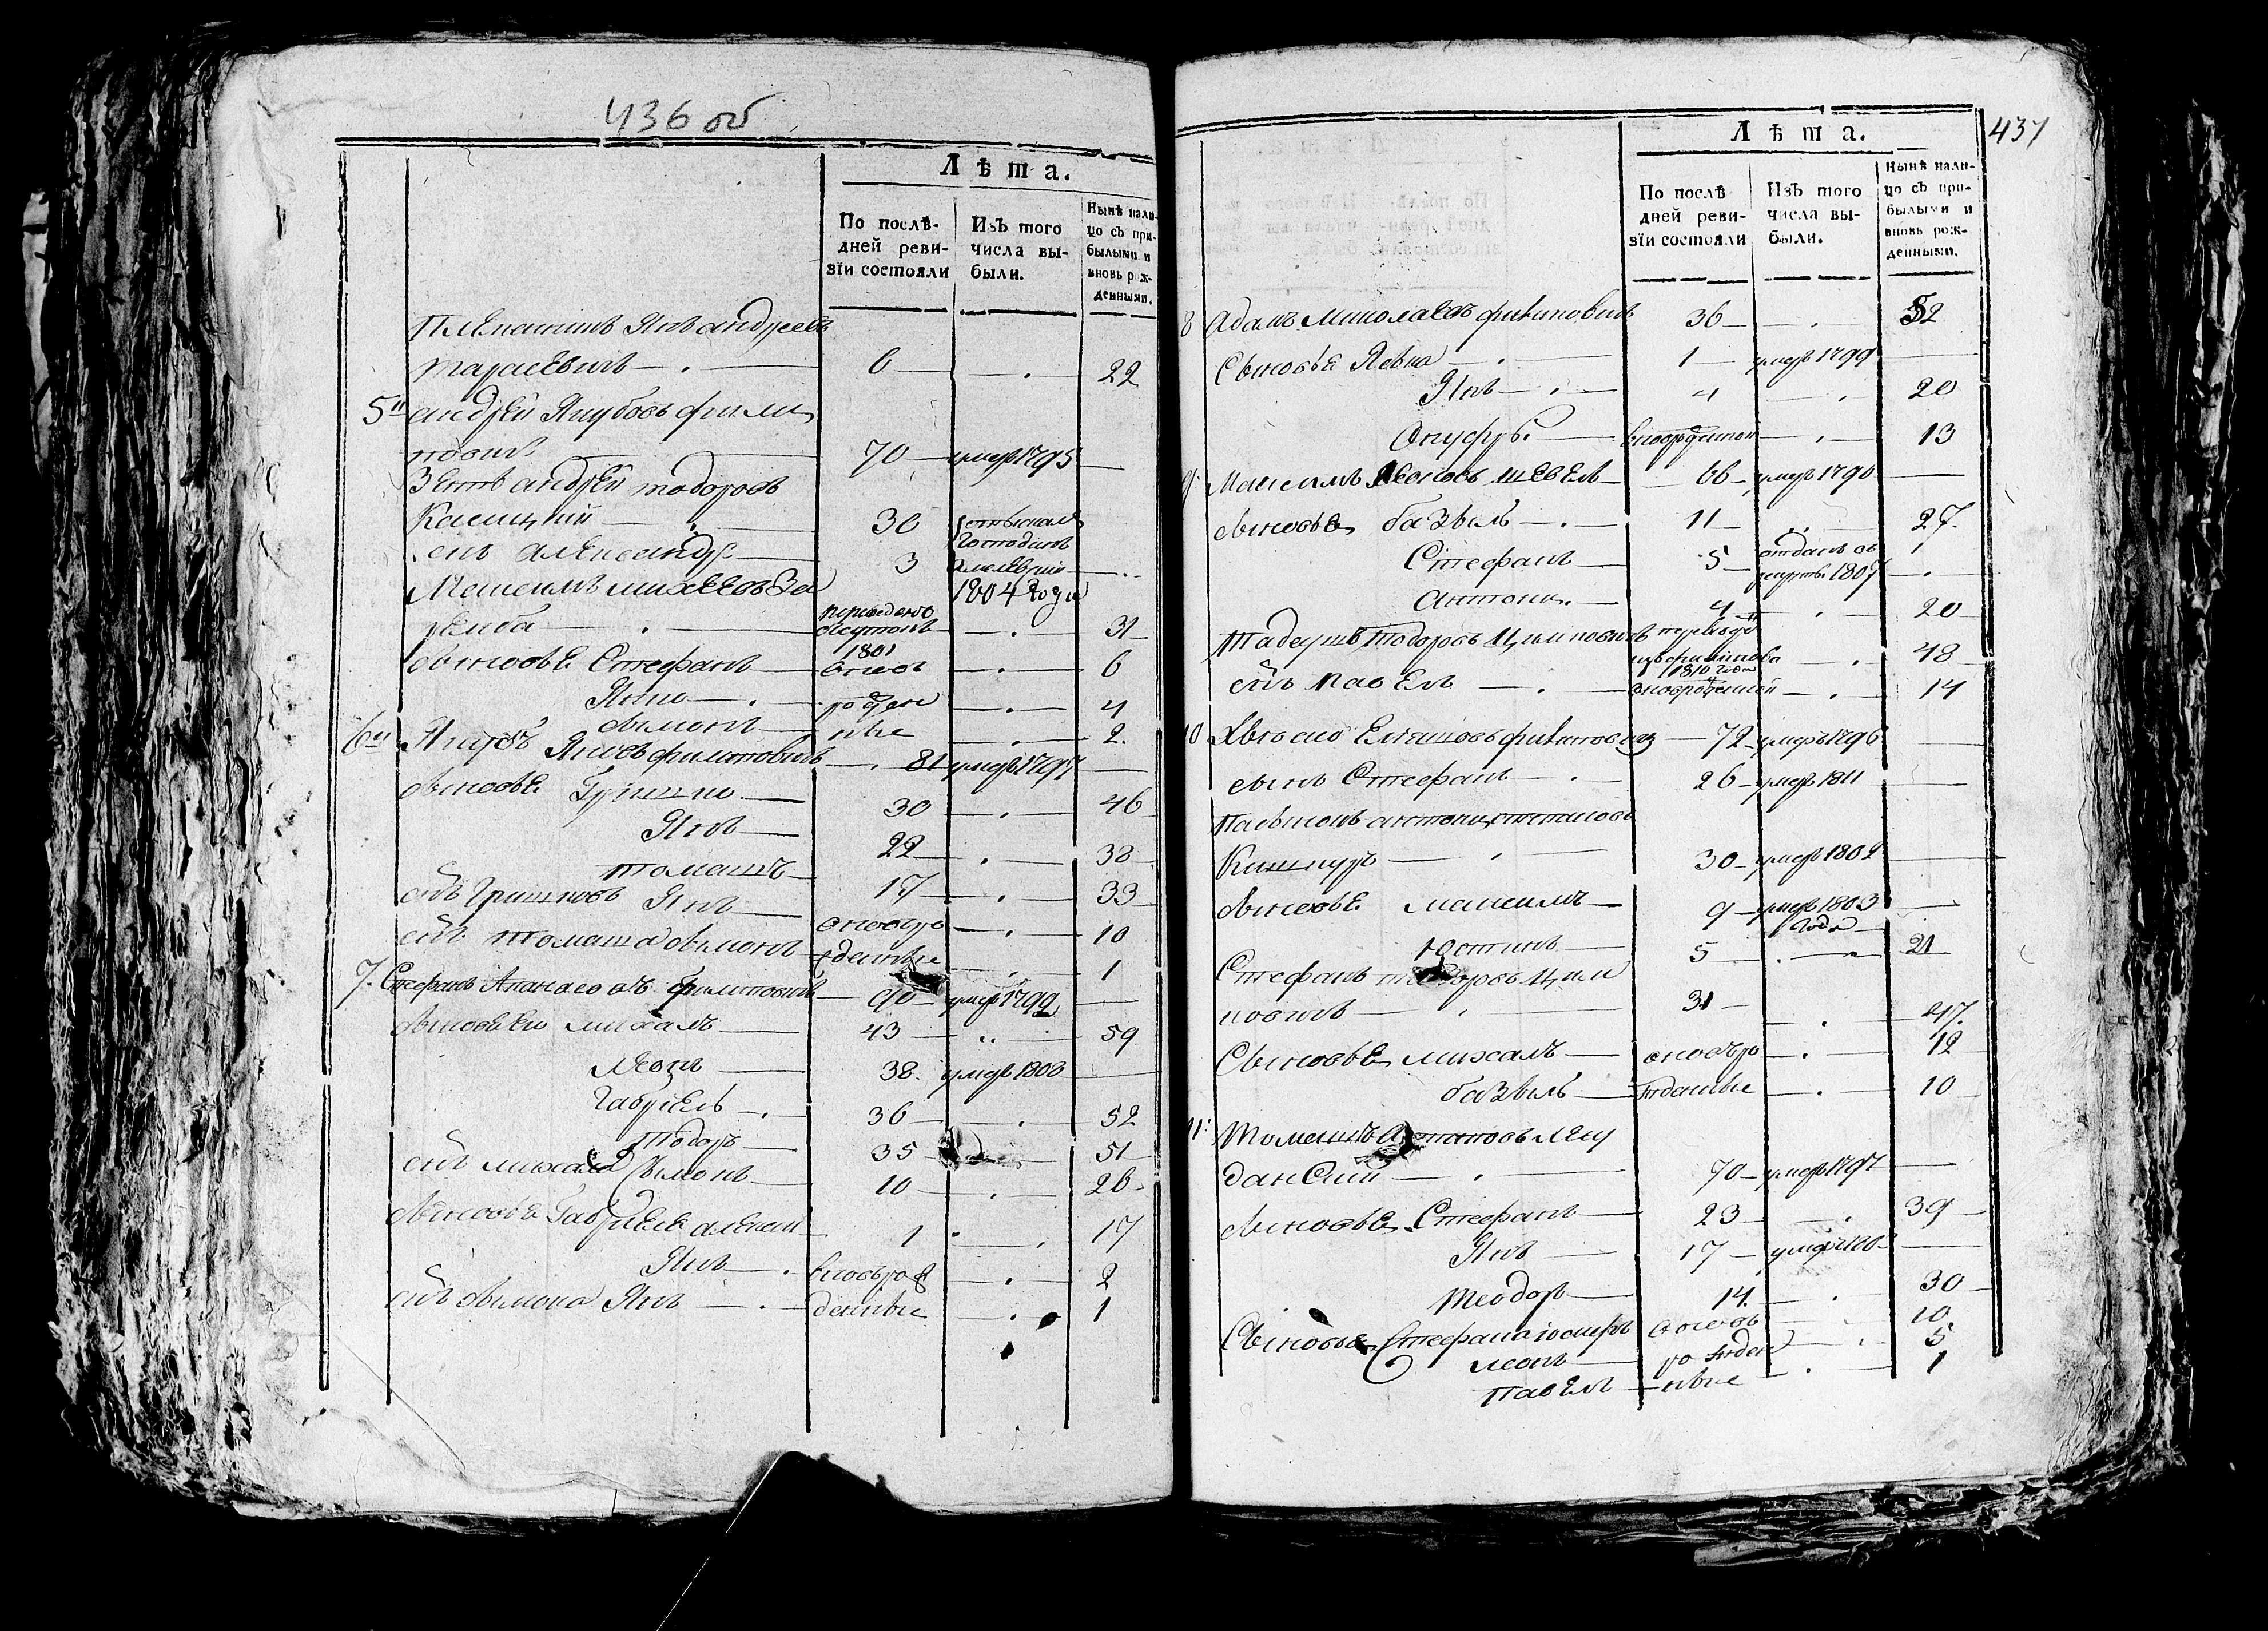 436 об
Лѣта.
По послѣ-
дней реви-
зїи состояли
Изъ того
числа вы-
были.
Нынѣ нали-
цо съ при-
былыми и
вновь рож-
денными.
Племянникъ Янъ андреевъ
тарасевичъ 6 22
5 андрей Якубовъ фили
повичъ 70 умеръ 1795
Зеть андрей тодоровъ
Касицкий 30 отысканъ
Господинъ
сынъ александръ 3
1804 года
Максимъ михеевъ
переведенъ
31
1801
сыновье Стефанъ вновь 6
Янко рожден 4
сымонъ ные 2
6 Якубъ Яковъ филиповичъ 81 умеръ 1797
сыновье Гришко 30 46
Янъ 22 38
томашъ 17 33
сынъ Гришковъ Янъ вновьро 10
сынъ томаша сымонъ жденные 1
7. Стефанъ Апанасовъ филиповичъ 90 умеръ 1799
сыновье его михалъ 43 59
Леонъ 38. умеръ 1808
Габрiель 36 52
Тодоръ 35 51
сынъ михала сымонъ 10 26
сыновье Габрiеля алексей 1 17
Янъ вновьрож 2
сынъ сымона Янъ денные 1
437
Лѣта.
По послѣ
дней реви-
зїи состояли
Изъ того
числа вы-
были.
Нынѣ нали-
цо съ при-
былыми и
вновь рож-
денными.
8 Адамъ Миколаевъ филиповичъ 36 52
Сыновье Левко 1 умеръ 1799
Янъ 4 20
Ануфрый вноворожденой 13
9. Максимъ Леоновъ шевель 66 умеръ 1796
сыновье базыль 11 27.
Стефанъ 5 отданъ въ
рекруты 1807
Антони. 4 20
Тадеушъ Тодоровъ Циповичъ переведен
48
1810 года
сынъ Павелъ вноворожденный 14
10 филиповичъ 72 умеръ 1796
сынъ Стефанъ 26 умеръ 1811
Пасынокъ антони степановъ
Кишкуръ 30 умеръ 1802
сыновье максимъ 9 умеръ 1803
года
Юстинъ 5 21
Стефанъ тодоровъ Ципи
повичъ 31 47.
Сыновье михалъ вновьро 12
базыль жденные 10
11: Томашъ Астаповъ Леу
данский 70 умеръ 1797
сыновье Стефанъ 23 39
Янъ 17 умеръ
теодоръ 14. 30
Сыновья Стефана иосифъ вновь 10
леонъ рожден 5
павелъ ные 1